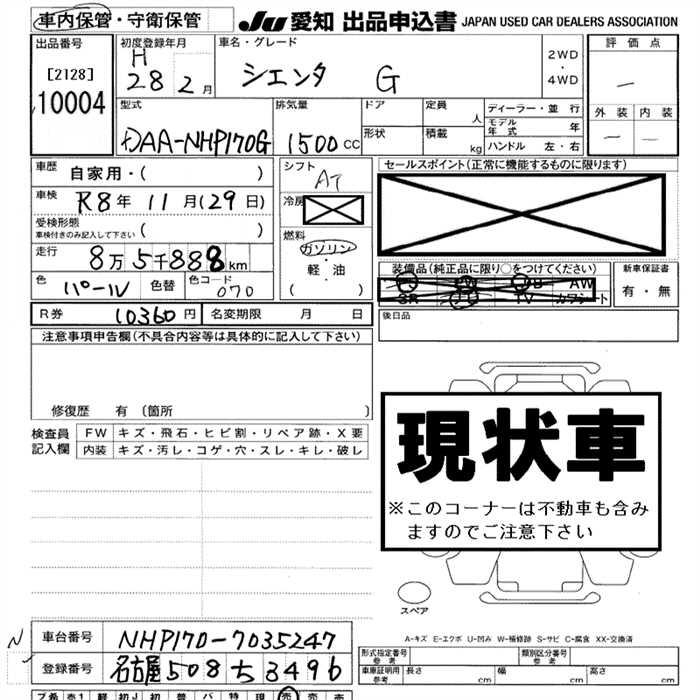 車内保管・守衛保管
JU 愛知 出品申込書 JAPAN USED CAR DEALERS ASSOCIATION
出品番号
[2128]
10004
初度登録年月
H
28 2月
車名・グレード
シエンタ G
2WD
・
4WD
評価点
―
外装 内装
― ―
型式
DAA-NHP170G
排気量
1500cc
ドア
形状
定員 人
積載 kg
ディーラー・並行
モデル年式 年
ハンドル 左・右
車歴 自家用・( )
車検 R8年11月(29日)
受検形態
車検付きのみ記入して下さい ( )
走行 8万5千888km
色 パール 色替 色コード 070
シフト
AT
冷房
燃料
ガソリン
・
軽・油
( )
セールスポイント(正常に機能するものに限ります)
装備品(純正品に限り○をつけてください)
AW
SR TV カワシート
新車保証書
有・無
後日品
R券 10360円 名変期限 月 日
注意事項申告欄(不具合内容等は具体的に記入して下さい)
修復歴 有 〔箇所 〕
検査員記入欄
FW キズ・飛石・ヒビ割・リペア跡・X要
内装 キズ・汚レ・コゲ・穴・スレ・キレ・破レ
現状車
※このコーナーは不動車も含み
ますのでご注意下さい
スペア
A-キズ E-エクボ U-凹み W-補修跡 S-サビ C-腐食 XX-交換済
N
車台番号 NHP170-7035247
登録番号 名古屋508ち3496
形式指定番号 参考
類別区分番号 参考
車庫証明用 参考 長さ cm 幅 cm 高さ cm